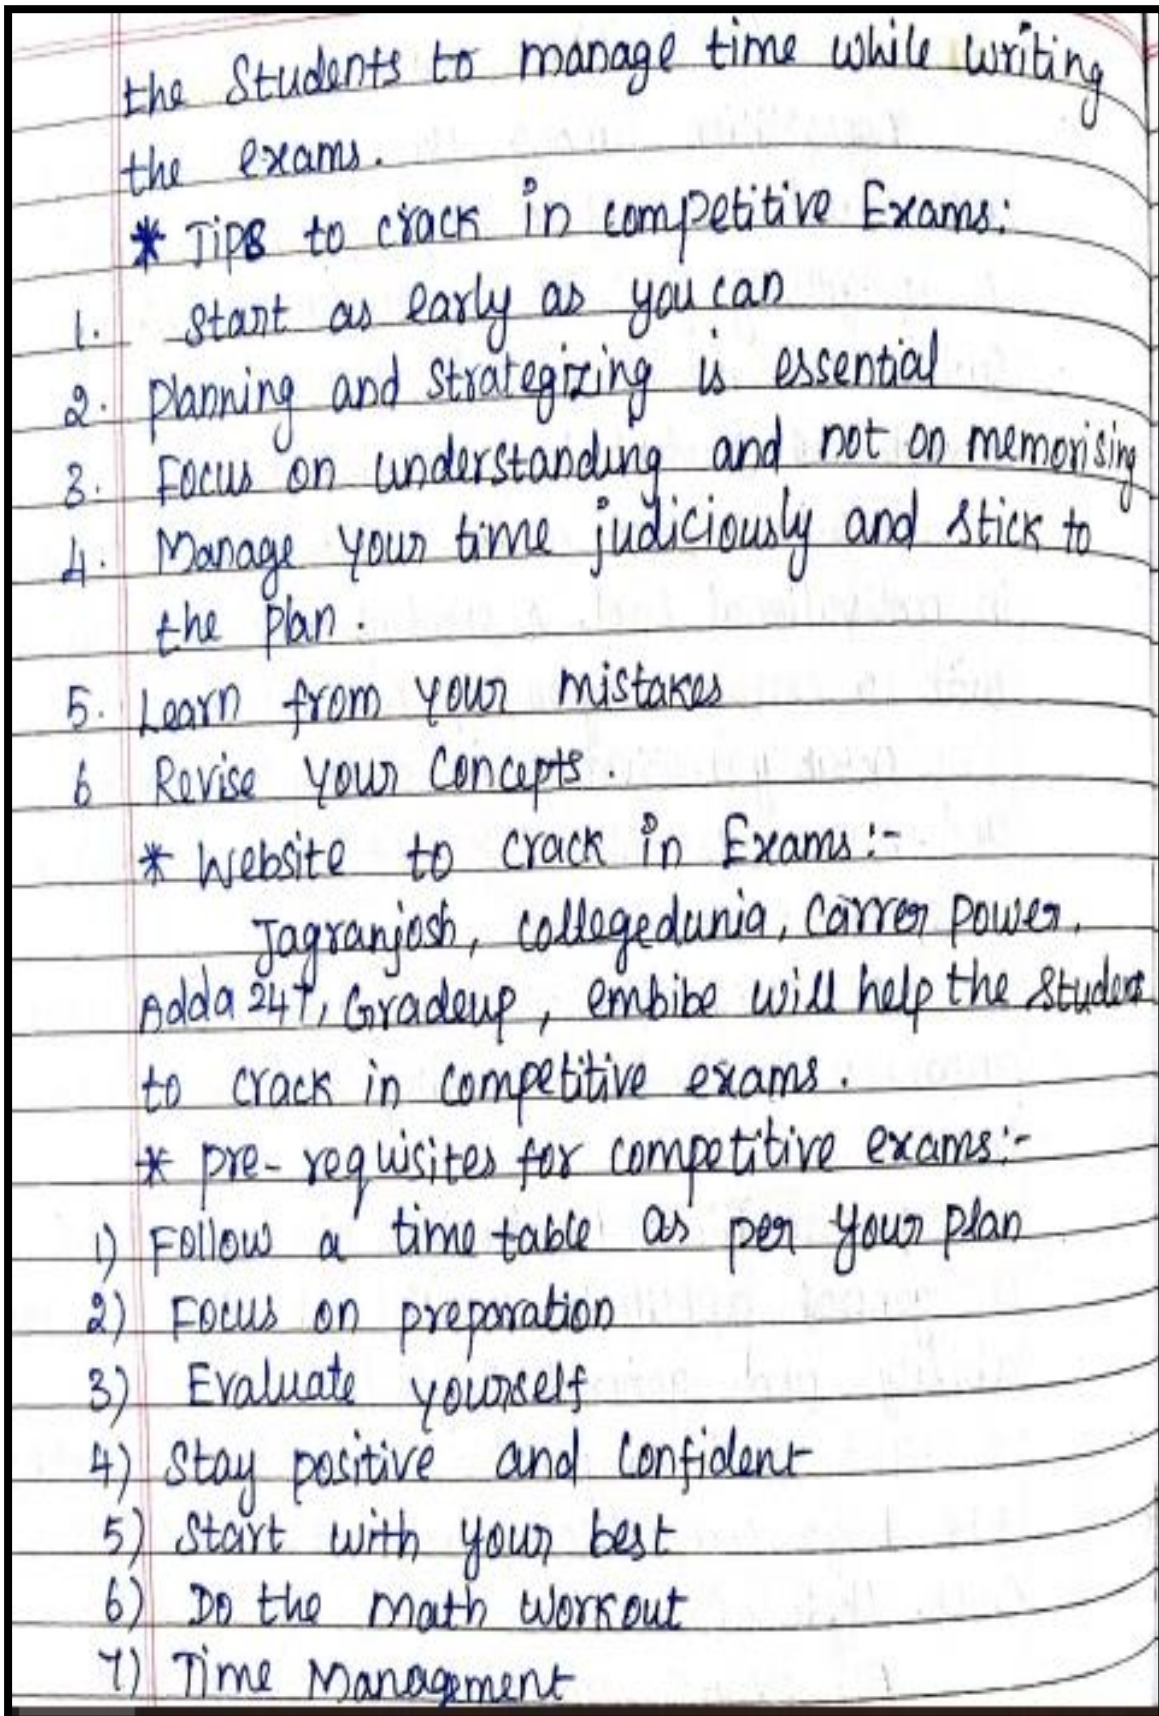 the Students to manage time while writing
the exams.
* Tips to crack in competitive Exams:
1. Start as early as you can
2. planning and strategizing is essential
3. Focus on understanding and not on memorising
4. Manage your time judiciously and stick to
the plan.
5. Learn from your mistakes
6 Revise your concepts.
* Website to crack in Exams:-
Jagranjosh, collegedunia, Carrer power,
Adda 247, Gradeup, embibe will help the student
to crack in competitive exams.
* pre-requisites for competitive exams:-
1) Follow a time table as per your plan
2) Focus on preparation
3) Evaluate yourself
4) Stay positive and confident
5) Start with your best
6) Do the math workout
7) Time Management